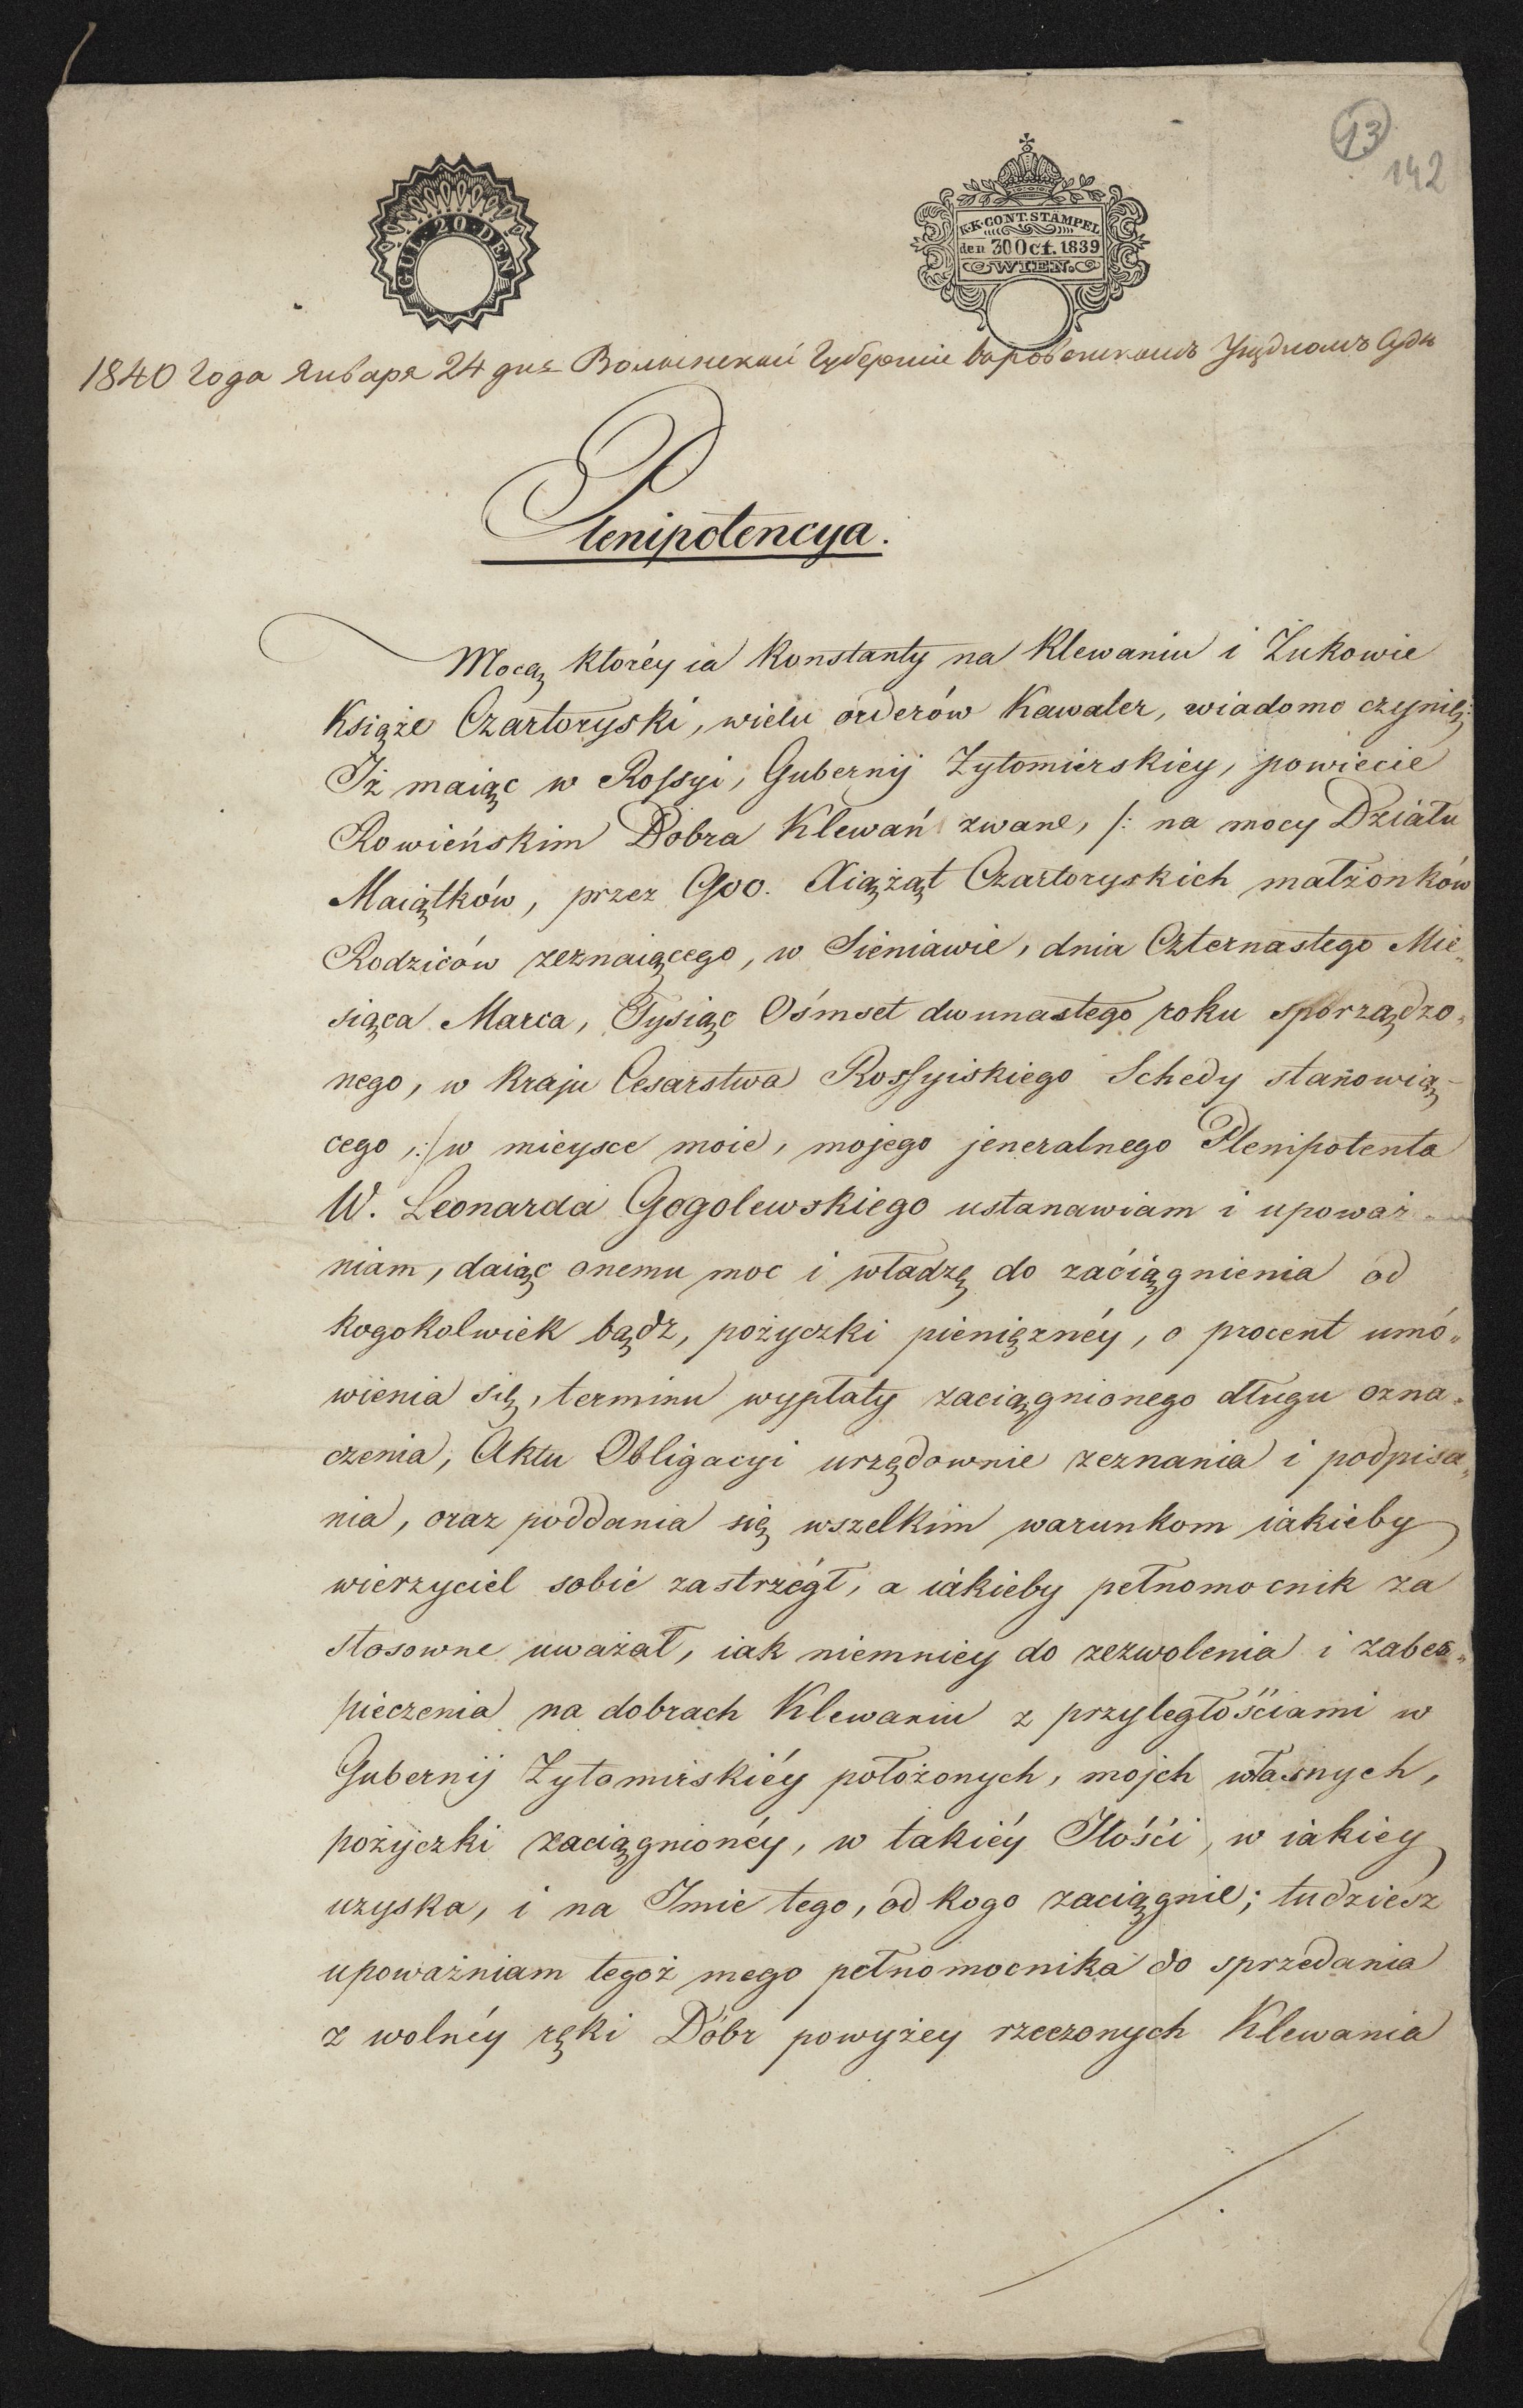 13
142
GUL·20·DEN
K.K.CONT.STÄMPEL
den 30 Oct. 1839
WIEN.
1840 года Января 24 дня Волынской Губерніи Уѣздномъ Судѣ
Plenipotencya.
Mocą któréy ia Konstanty na Klewaniu i Żukowie
Książe Czartoryski, wielu orderów Kawaler, wiadomo czynię:
Iż maiąc w Rossyi, Gubernij Żytomierskiey, powiecie
Rowieńskim Dobra Klewań zwane, /: na mocy Działu
Maiątków, przez Xiążąt Czartoryskich małżonków
Rodziców zeznaiącego, w Sieniawie, dnia Czternastego Mie„
siąca Marca, Tysiąc Ośmset dwunastego roku sporządzo„
nego, w kraju Cesarstwa Rossyiskiego Schedy stanowią-
cego,:/ w mieysce moie, mojego jeneralnego Plenipotenta
W. Leonarda Gogolewskiego ustanawiam i upoważ-
niam, daiąc onemu moc i władzę do zaciągnienia od
kogokolwiek bądz, pożyczki pieniężnéy, o procent umó„
wienia się, terminu wypłaty zaciągnionego długu ozna„
czenia, Aktu Obligacyi urzędownie zeznania i podpisa„
nia, oraz poddania się wszelkim warunkom iakieby
wierzyciel sobie zastrzégł, a iakieby pełnomocnik za
stosowne uważał, iak niemniey do zezwolenia i zabez„
pieczenia na dobrach Klewaniu z przyległościami w
Gubernij Żytomirskiéy położonych, mojch własnych,
pożyczki zaciągnionéy, w takiéy Ilości, w iakiey
uzyska, i na Imie tego, od kogo zaciągnie; tudziesz
upoważniam tegoż mego pełnomocnika do sprzedania
z wolnéy ręki Dóbr powyżey rzeczonych Klewania